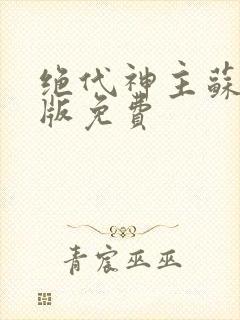 绝代神主蘇
版免費
青宸巫巫